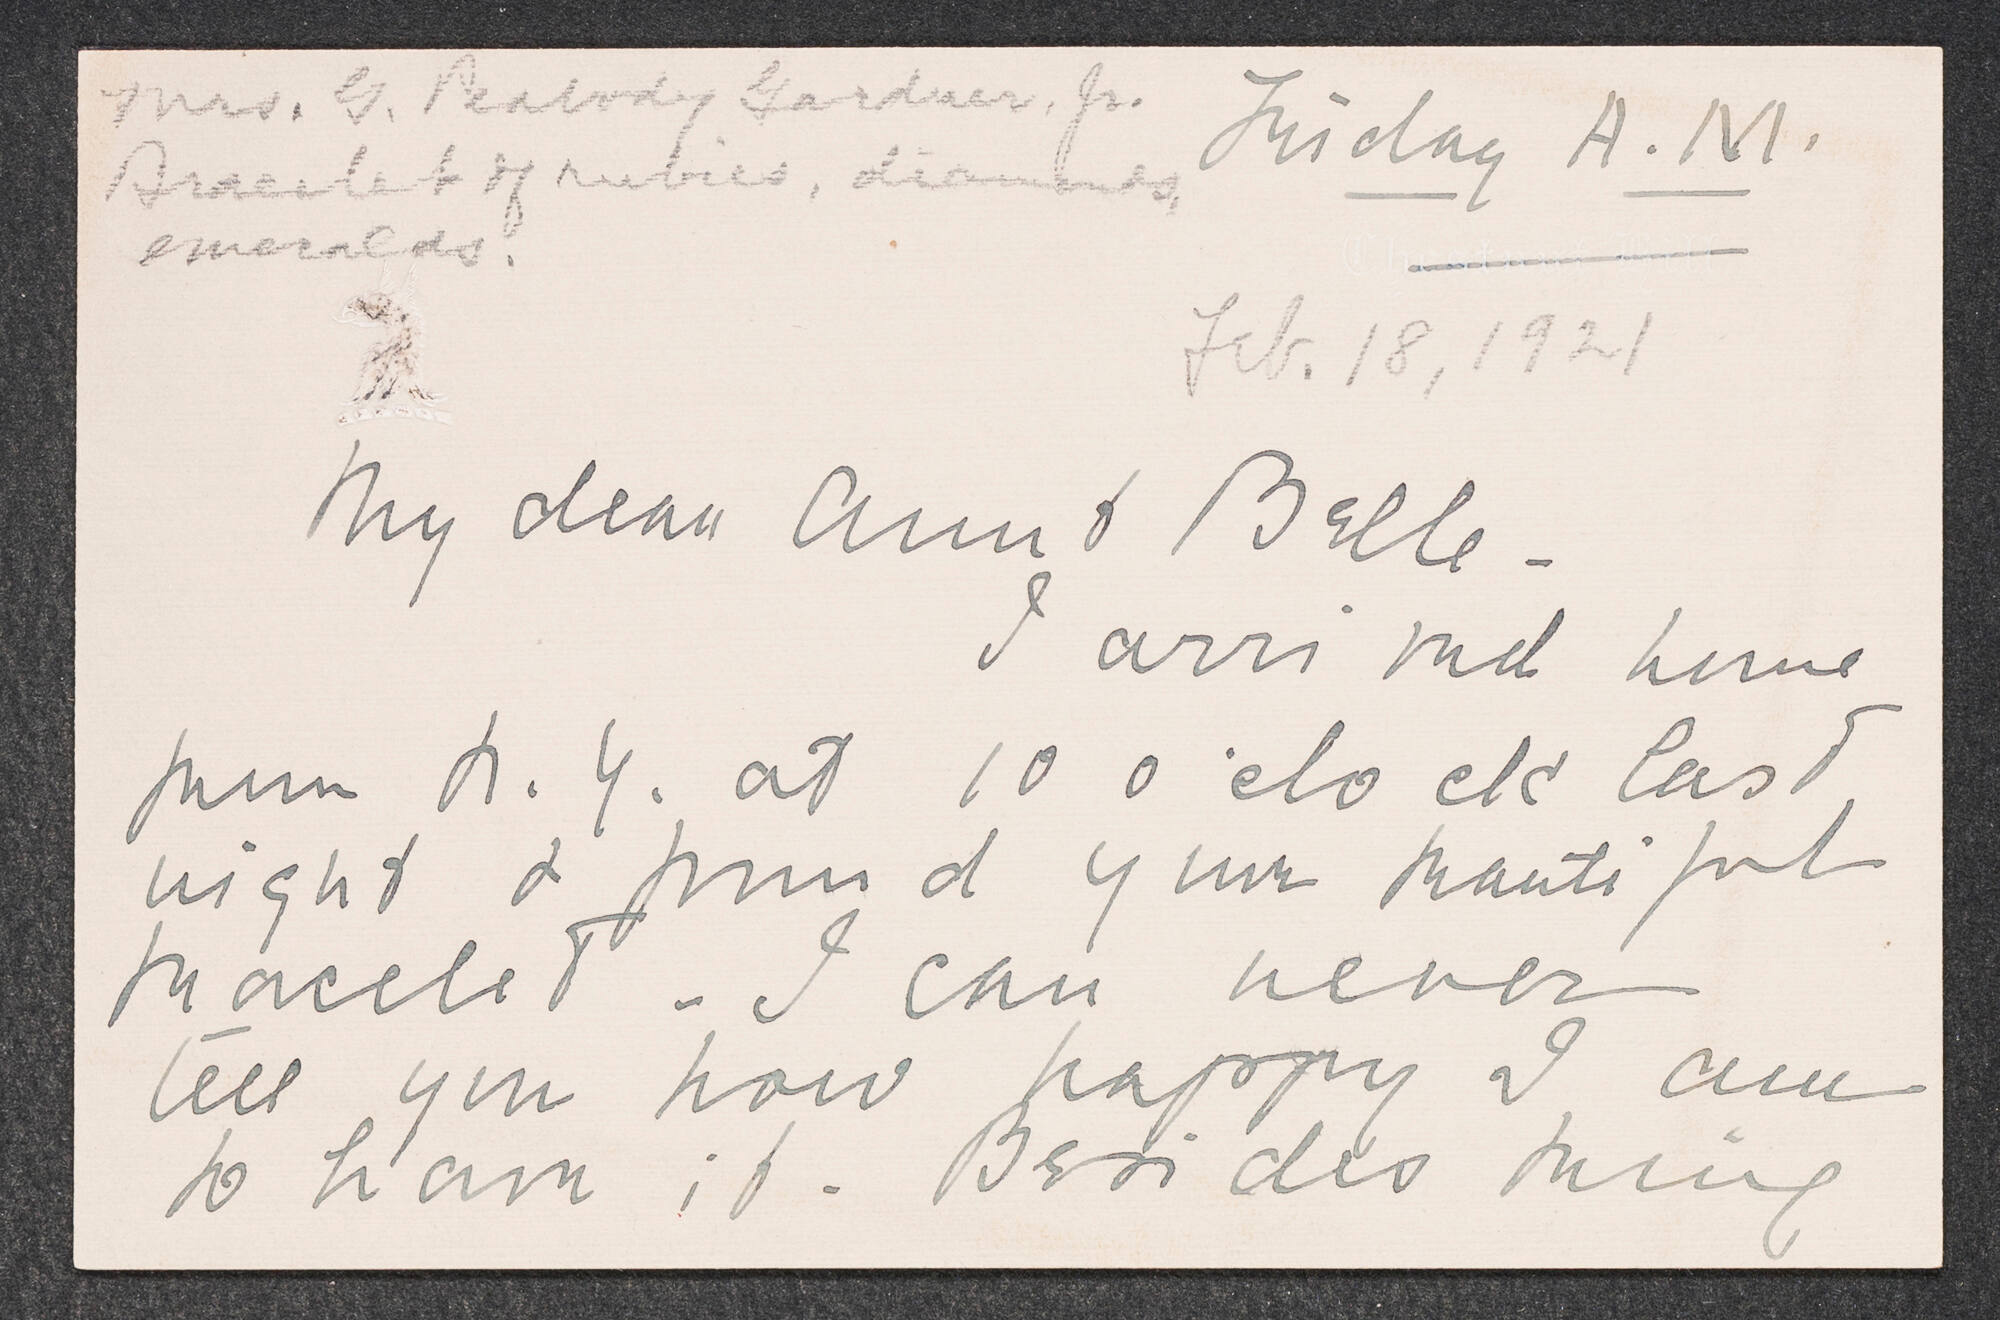 Mrs. G. Peabody Gardner, Jr.
Bracelet of rubies, diamonds,
emeralds.
Friday A.M.
Feb. 18, 1921
My dear Aunt Belle -
I arrived home
from N.Y. at 10 o'clock last
night & found your beautiful
bracelet - I can never
tell you how happy I am
to have it - Besides being